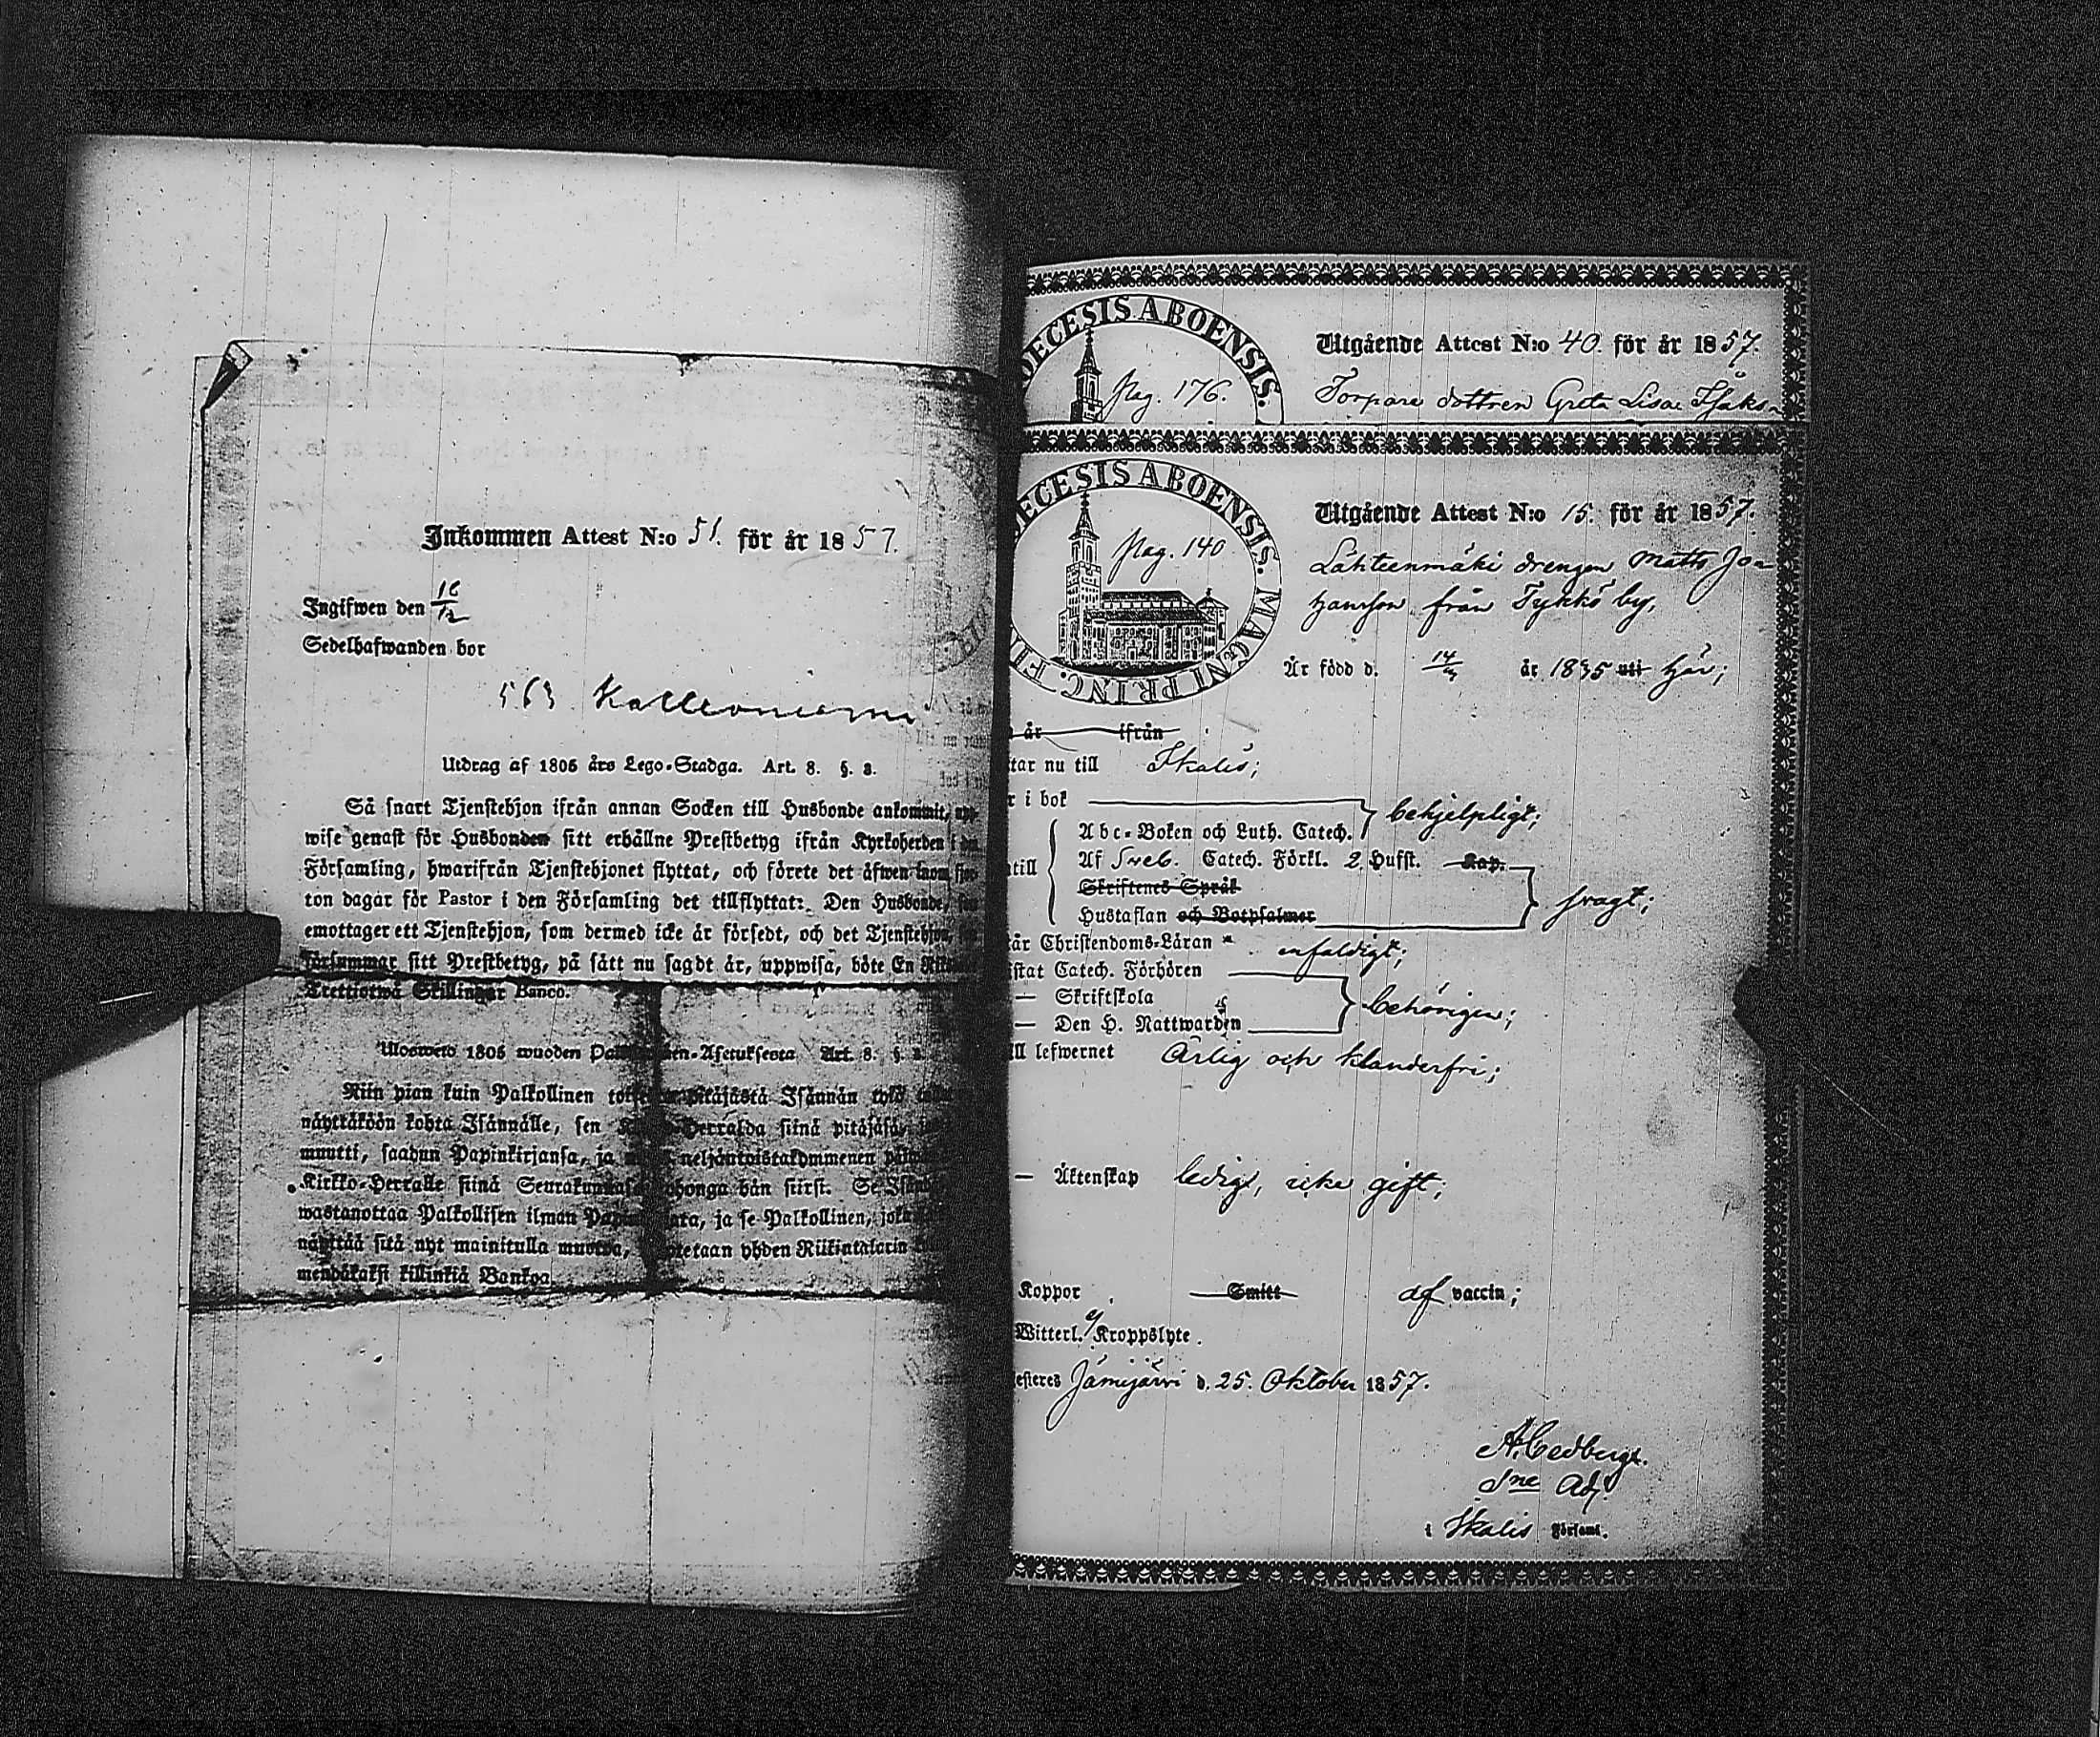 Inkommen Attest N:o 51. för år 1857.
Ingifwen den 16/12
Sedelhafwanden bor
563
Utdrag af 1805 års Lego-Stadga. Art. 8. §. 3.
Så snart Tjenstehjon ifrån annan Socken till Husbonde ankommit, upp-
wise genast för Husbonden sitt erhållne Prestbetyg ifrån Kyrkoherden i
Församling, hwarifrån Tjenstehjonet flyttat, och förete det äfwen inom fjor-
ton dagar för Pastor i den Församling det tillflyttat. Den Husbonde,
emottager ett Tjenstehjon, som dermed icke är försedt, och det Tjenstehjon,
försummar sitt Prestbetyg, på sätt nu sagdt är, uppwisa, böte En
Trettiotwå Skillingar Banco.
Uloswето 1805 wuoden Art. 8. §.
Niin pian kuin Palkollinen pitäjästä Isännän tykö
näyttäköön kohta Isännälle, sen Herralda siinä pitäjäsä,
muutti, saadun Papinkirjansa, ja neljäntoistakymmenen
Kirkko-Herralle siinä hänen siirsi. Se
wastanottaa Palkollisen ilman ja se Palkollinen,
näyttää sitä nyt mainitulla muotoa, yhden Riikintalarin
mendäkaksi killinkiä Bankoa.
DECESIS ABOENSIS.
Pag. 176.
Utgående Attest N:o 40. för år 1857.
Torpare dottren Greta Lisa Isaks-
ECESIS ABOENSIS. MAGNI PRINC. FI
Pag. 140
Utgående Attest N:o 15. för år 1857.
Lähteenmäki drengen Matts Jo-
hansson från Tykkö by,
Är född d. 14/ år 1835 uti här;
år ifrån
tar nu till Ikalis;
r i bok behjelpligt;
Abc-Boken och Luth. Catech.
till Af Sveb. Catech. Förkl. 2. Hufst. Kap.
Skriftenes Språk
Hustaflan och Botpsalmer svagt;
år Christendoms-Läran enfaldigt;
istat Catech. Förhören
— Skriftskola
— Den H. Nattwarden behörigen;
ill lefwernet Ärlig och klanderfri;
— Äktenskap ledig, icke gift;
Koppor Smitt af vaccin;
Witterl. Kroppslyte.
esteres Jämijärvi d. 25. Oktober 1857.
A. Cedberg.
Adj.
i Ikalis Församl.